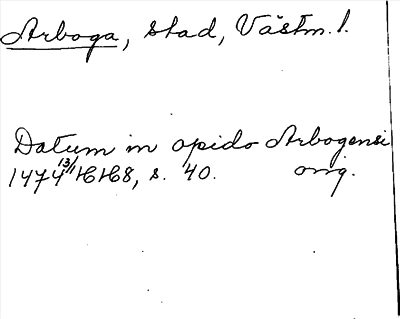 Arboga, stad, Västm. l.
Datum in opido Arbogensi
1474 13/1 HH8, s. 40. orig.